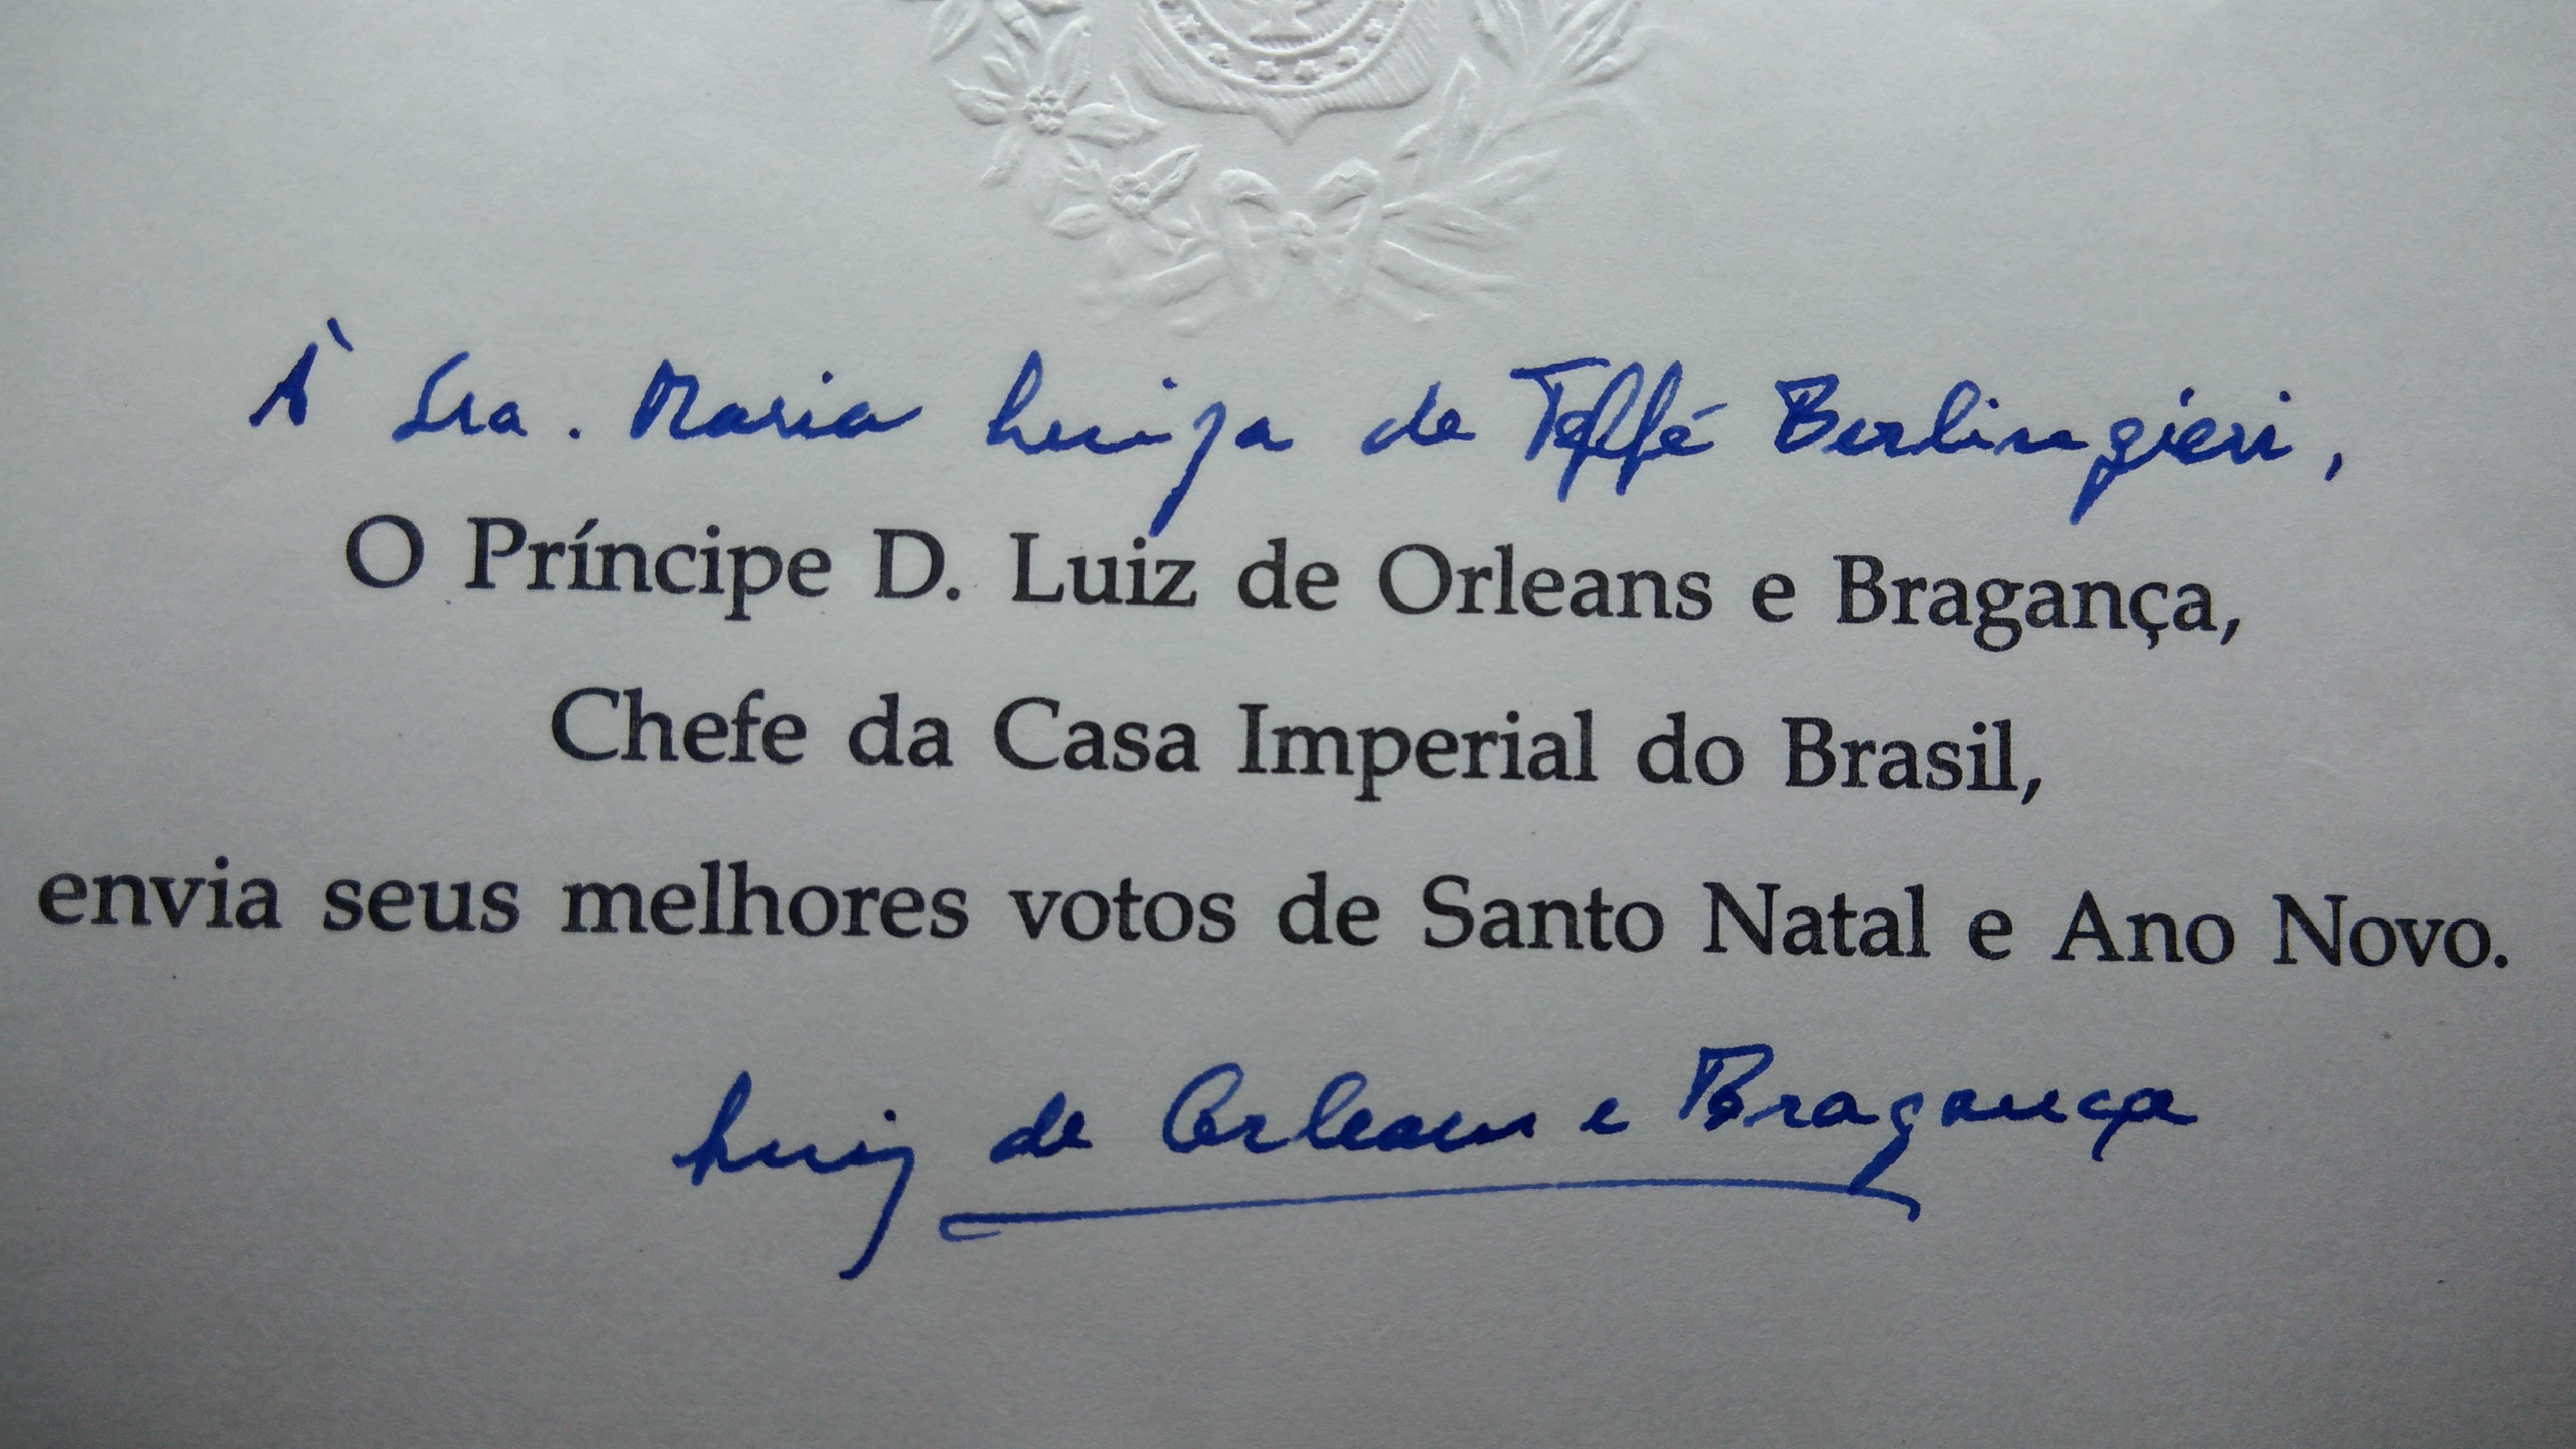 À Sra. Maria Luiza de Teffé Berlingieri,
O Príncipe D. Luiz de Orleans e Bragança,
Chefe da Casa Imperial do Brasil,
envia seus melhores votos de Santo Natal e Ano Novo.
Luiz de Orleans e Bragança